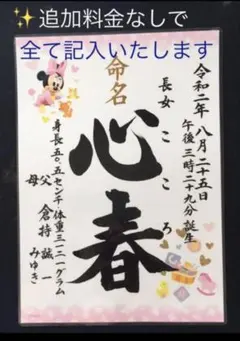 ✨追加料金なしで
全て記入いたします
令和二年八月二十五日
午後三時二十九分誕生
長女こころ
命名
心春
身長五〇.五センチ体重三一二一グラム
父倉持誠一
母みゆき